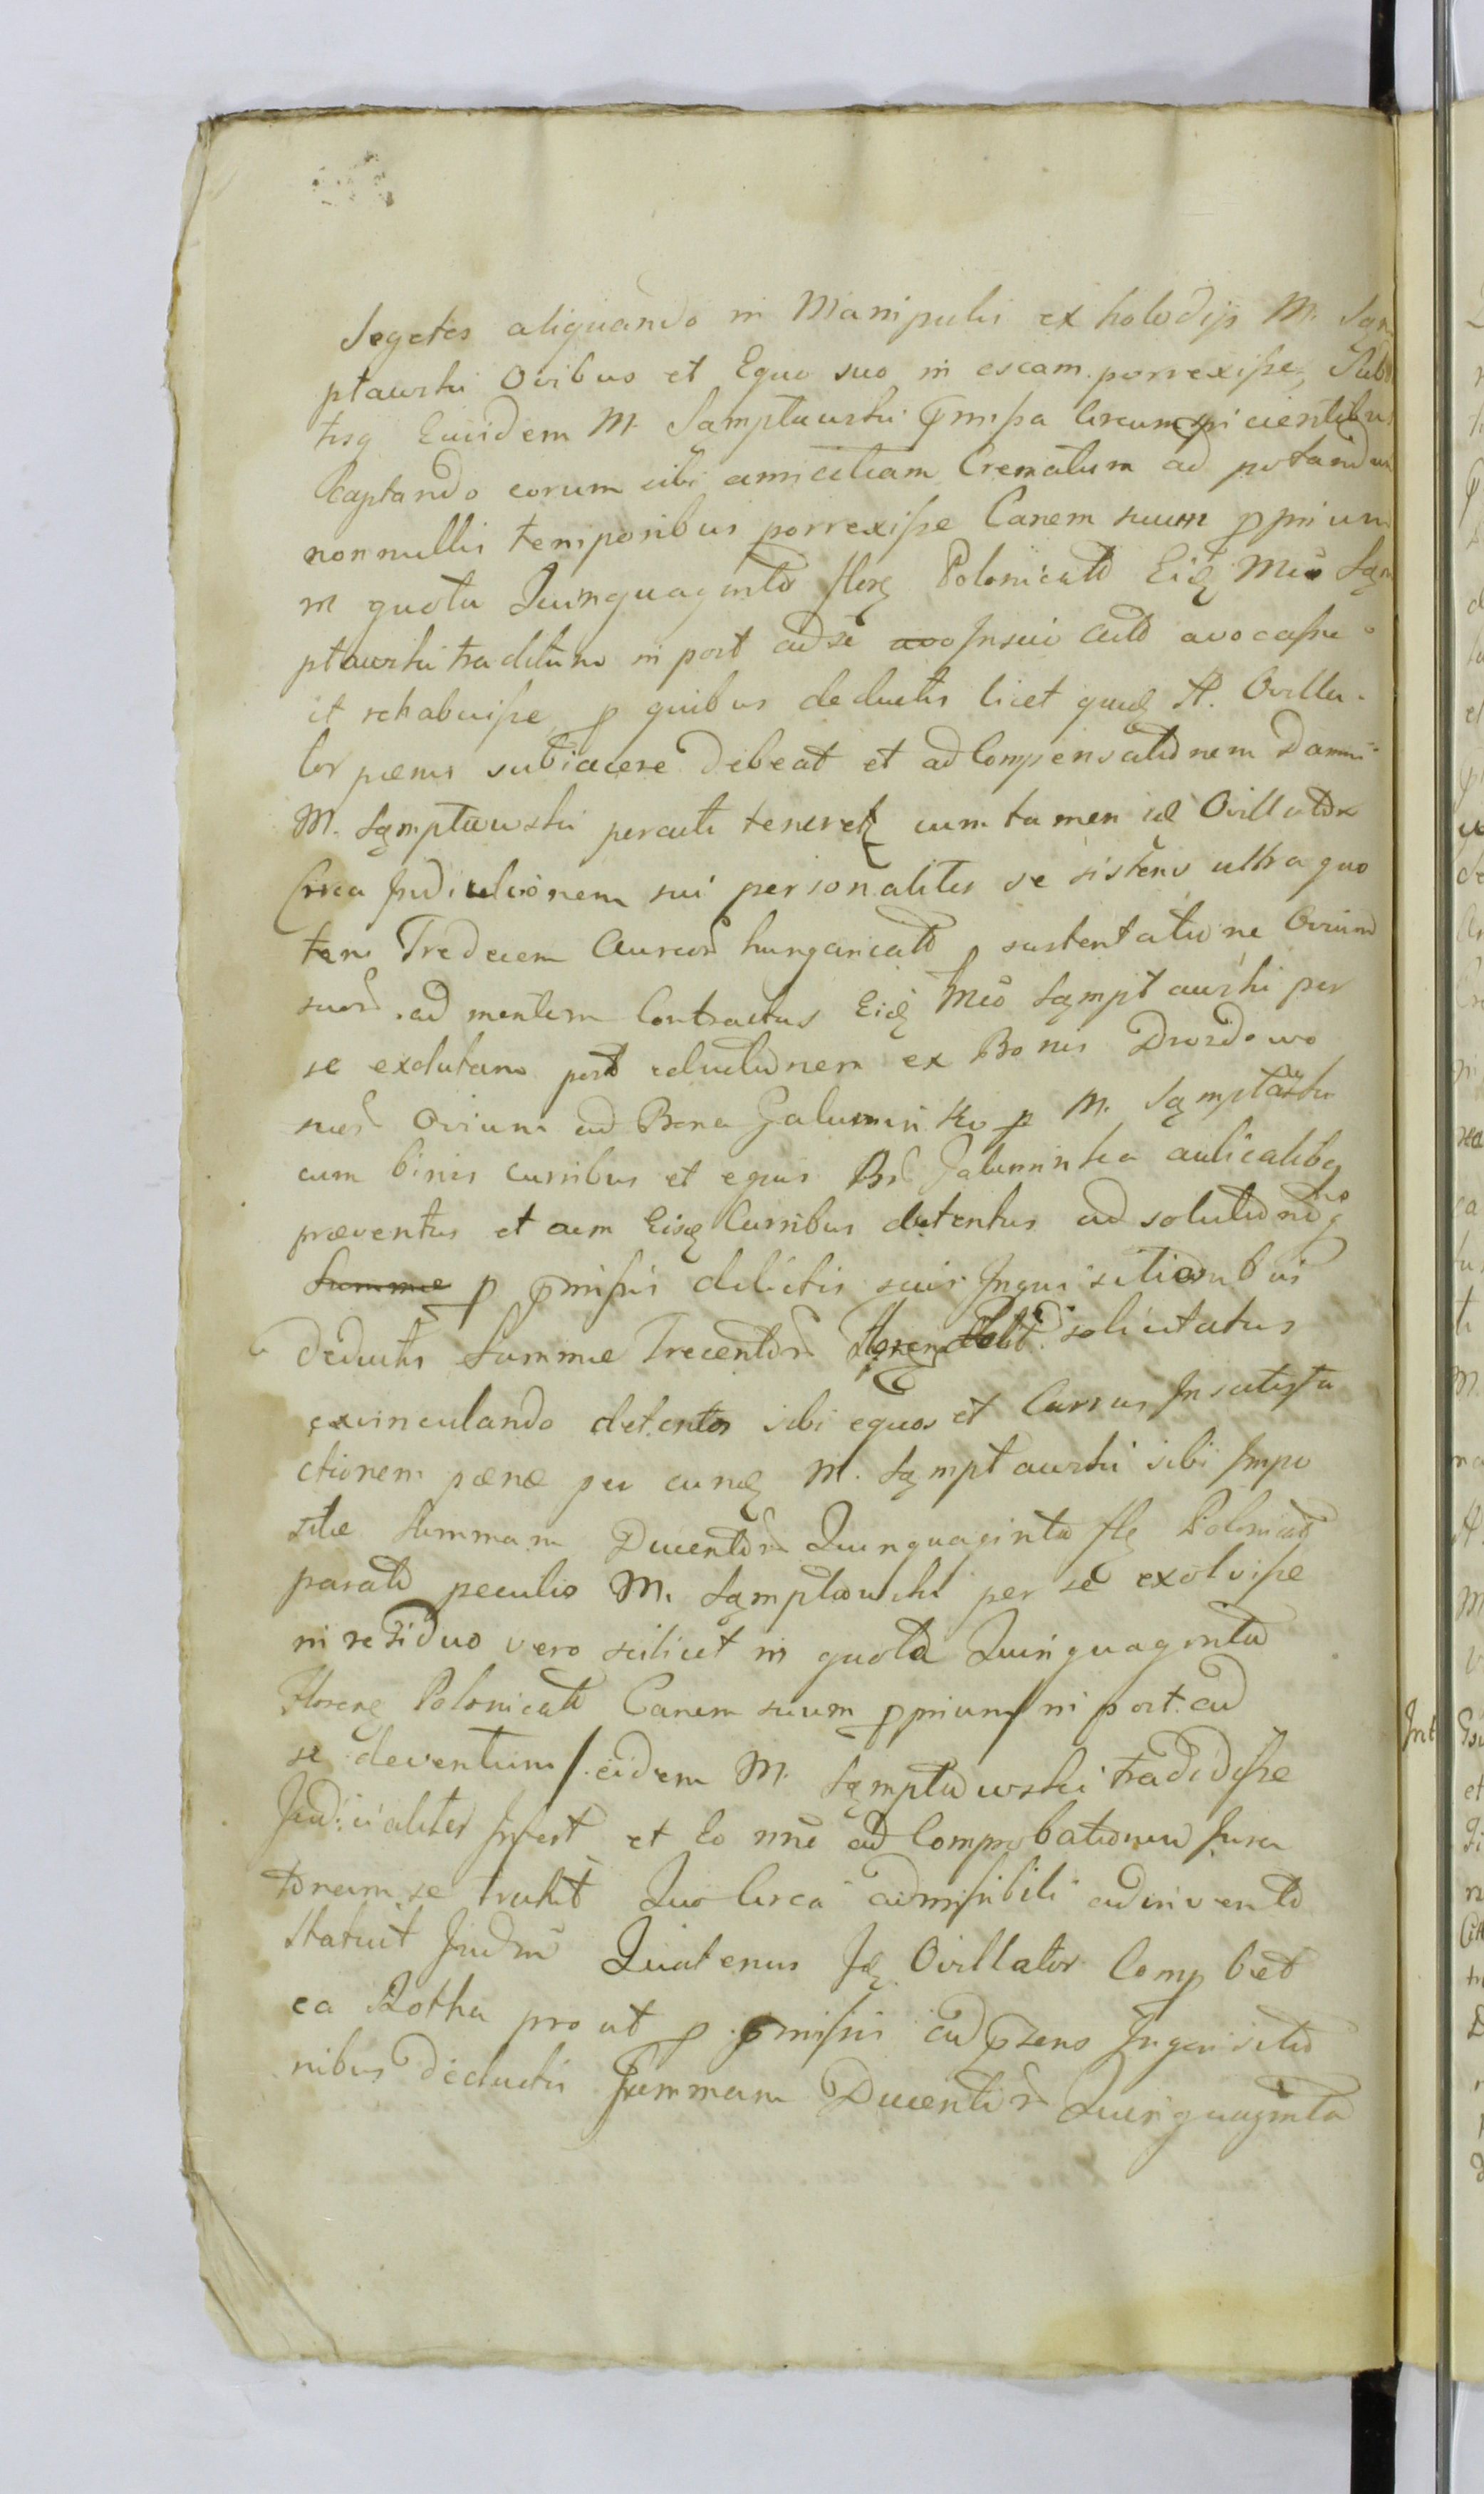 Segetes aliquando in Manipulis ex holodijs M. Sąm
ptawski Ovibus et Equo suo in escam porrexiſse, Subd
tisq Eiusdem M. Sąmptawski p̄miſsa Circumspicientibus
Captando eorum sibi amicitiam Crematum ad potandum
nonnullis temporibus porrexiſse Canem suum pprium
in quota Quinquaginta flor Polonicał Eid Mco Sąm
ptawski traditum in post ad se avocaſse
et rehabuiſse p quibus deductis licet A. Ovilla
tor pænis subiacere debeat et ad Compensationem Damni
M. Sąmptawski teneret cum tamen id Ovillator
Circa Inductionem sui personaliter se sistens ultra quo
tam Tredecem Aureor hungaricał p sustentatione Ovium
suar. ad mentem Contractus Eid Mco Sąmptawski per
se exolutam post eductionem ex Bonis Drozdowo
suar Ovium ad Bona Galuminsko p M. Sąmptawski
cum binis curribus et equis Galuminska aulicalibq
præventus et cum Eisd Curribus detentus ad solutionē
Summæ p p̄miſsis delictis suis Inquisitionibus
deductis Summæ Trecentor Floren Polł. solicitatus
exvinculando detentos sibi equos et Currus In satisfa
ctionem pænæ per eund M. Sąmptawski sibi Impo
sitæ Summam Ducentor Quinquaginta fl Polonicał
parato peculio M. Sąmptawski per se exolviſse
in residuo vero scilicet in quota Quinquaginta
Floren Polonicał Canem suum pprium / in post ad
se deventum / eidem M. Sąmptawski tradidiſse
Judicialiter Infert et Eo nne ad Comprobationem Jura
toriam se trahit Quo Circa admiſsibili adinvento
Statuit Judm Quatenus Id Ovillator Compbet
ea Rotha prout p p̄miſsis ad p̄sens Inquisitio
nibus deductis Summam Ducentor Quinquaginta